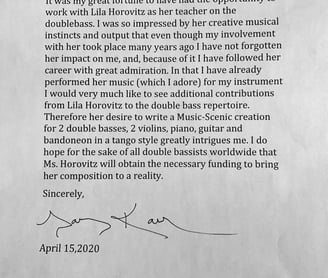 It was my great fortune to have had the opportunity to
work with Lila Horovitz as her teacher on the
doublebass. I was so impressed by her creative musical
instincts and output that even though my involvement
with her took place many years ago I have not forgotten
her impact on me, and, because of it I have followed her
career with great admiration. In that I have already
performed her music (which I adore) for my instrument
I would very much like to see additional contributions
from Lila Horovitz to the double bass repertoire.
Therefore her desire to write a Music-Scenic creation
for 2 double basses, 2 violins, piano, guitar and
bandoneon in a tango style greatly intrigues me. I do
hope for the sake of all double bassists worldwide that
Ms. Horovitz will obtain the necessary funding to bring
her composition to a reality.
Sincerely,
Gary Karr
April 15,2020